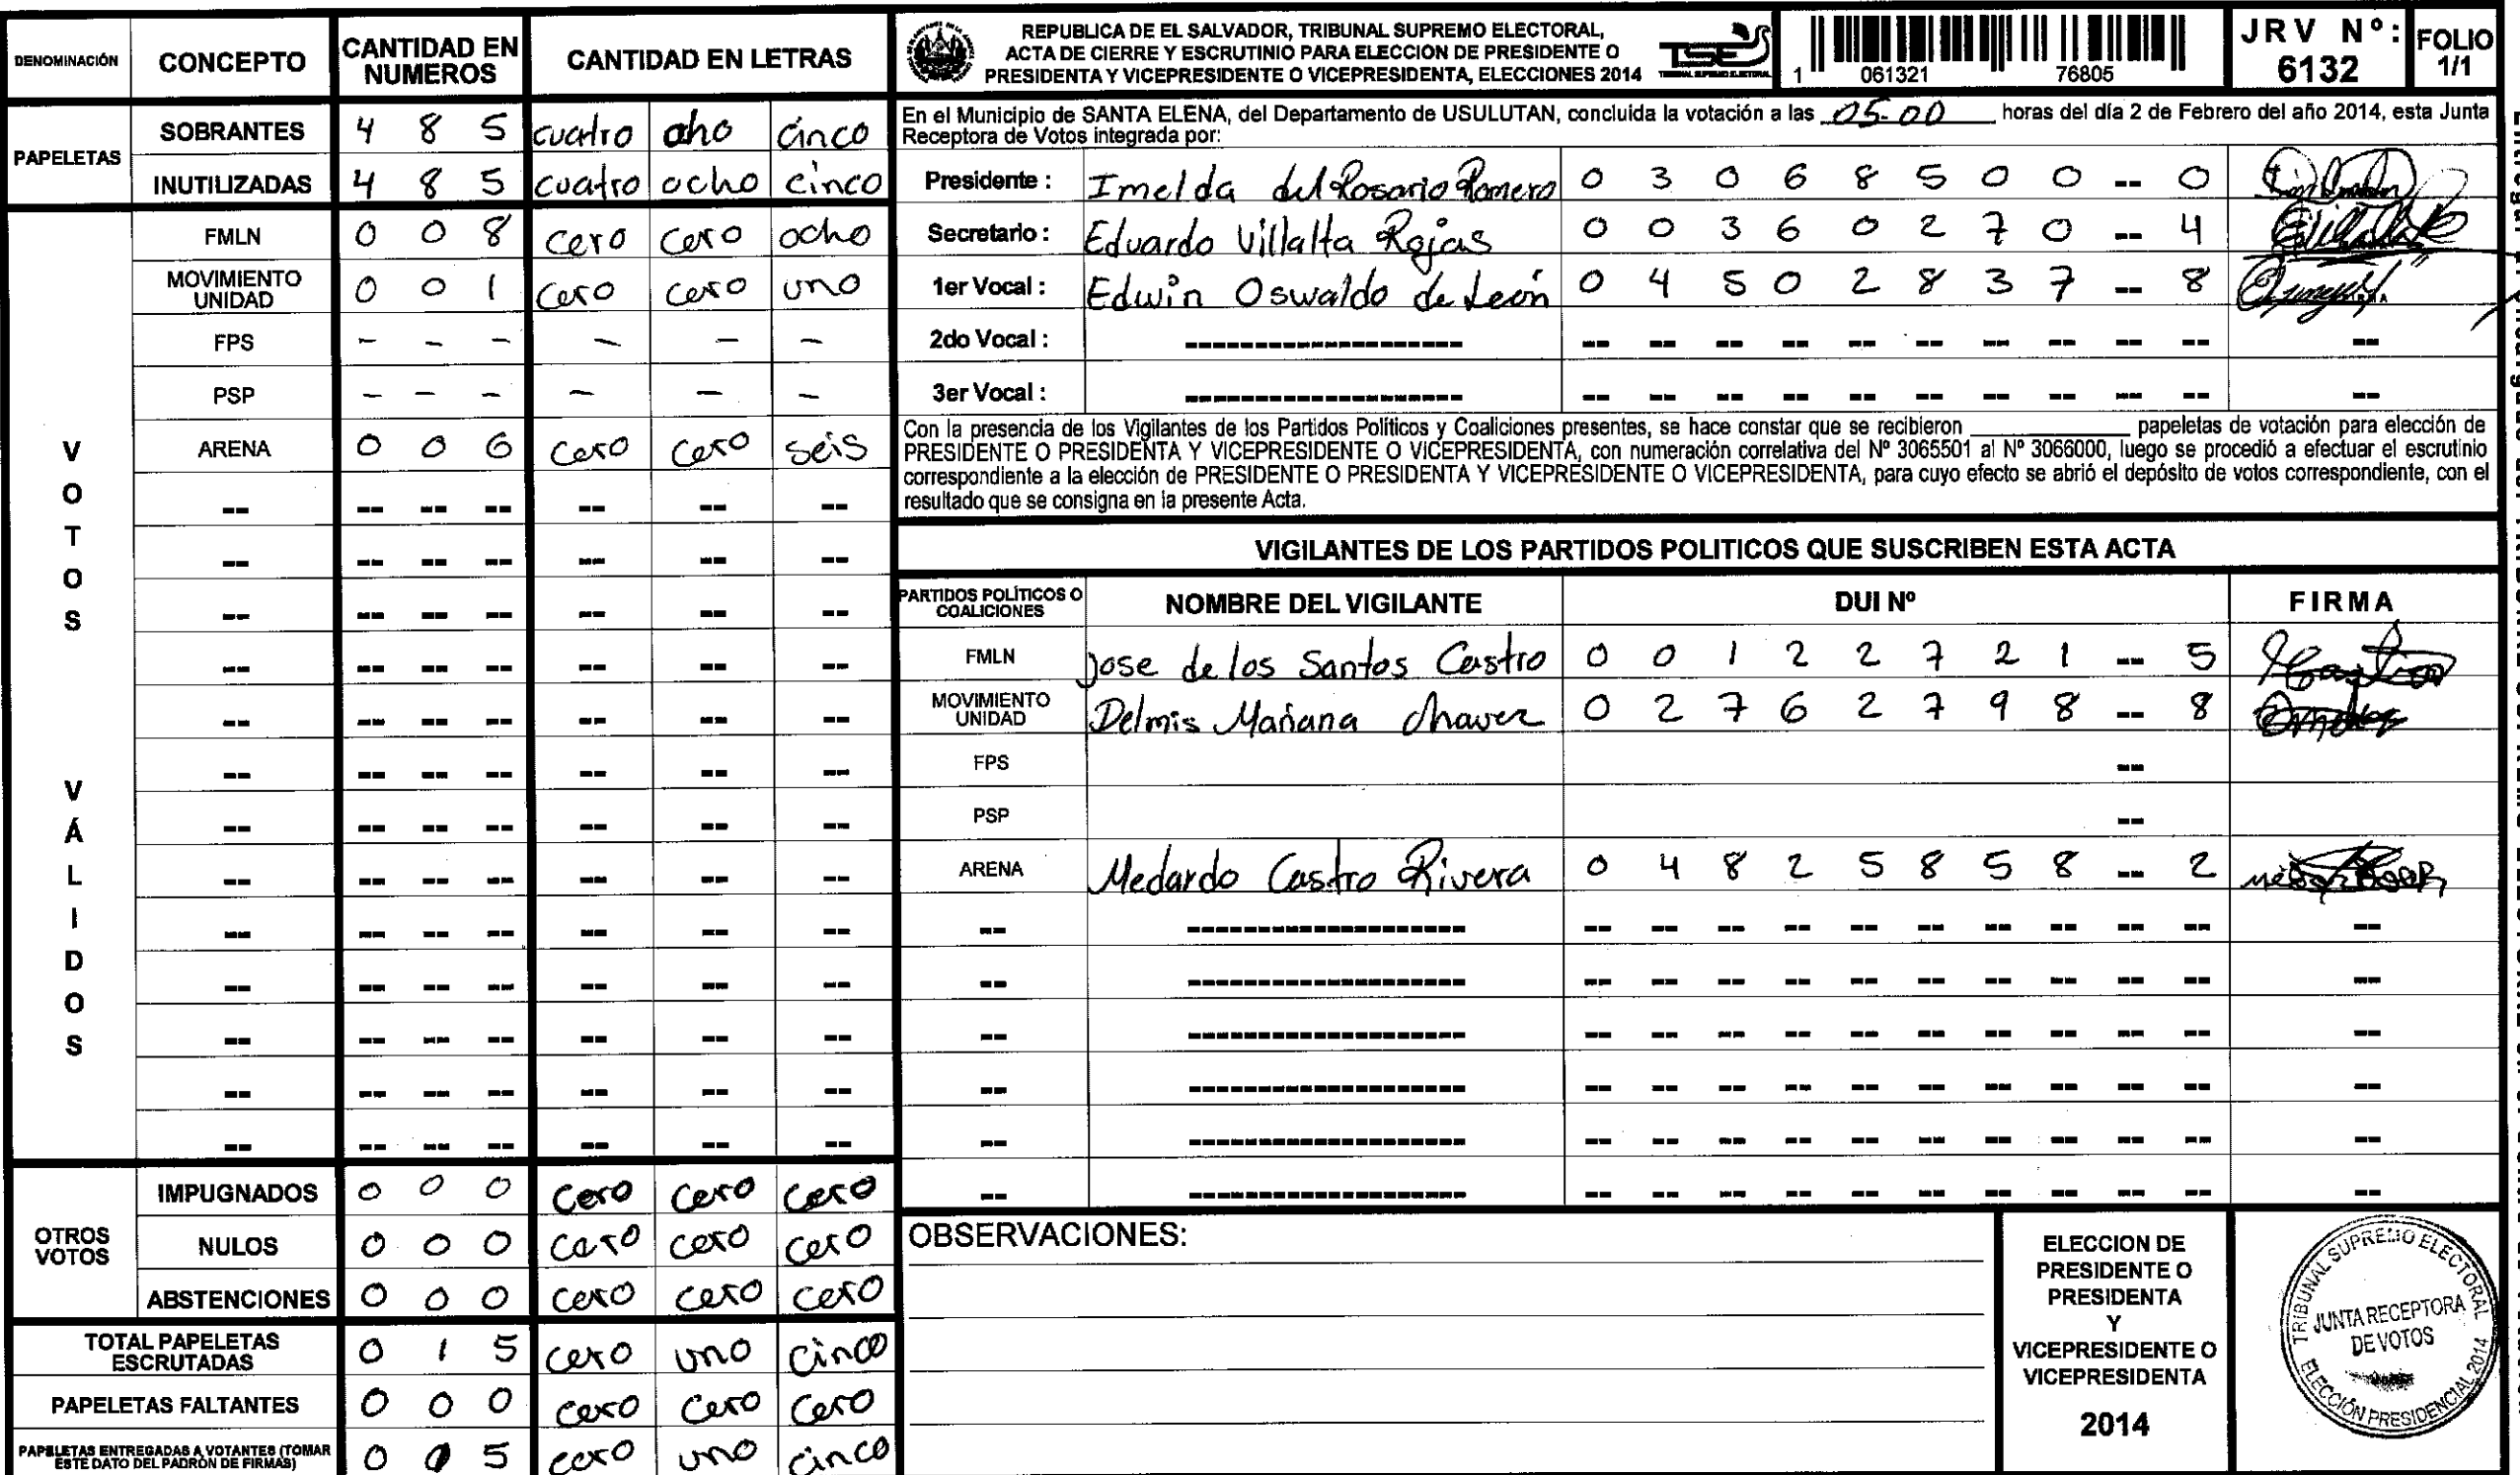 DENOMINACIÓN CONCEPTO CANTIDAD EN NUMEROS CANTIDAD EN LETRAS
PAPELETAS
SOBRANTES 4 8 5 cuatro ocho cinco
INUTILIZADAS 4 8 5 cuatro ocho cinco
VOTOS VÁLIDOS
FMLN 0 0 8 cero cero ocho
MOVIMIENTO UNIDAD 0 0 1 cero cero uno
FPS - - - - - -
PSP - - - - - -
ARENA 0 0 6 cero cero seis
OTROS VOTOS
IMPUGNADOS 0 0 0 cero cero cero
NULOS 0 0 0 cero cero cero
ABSTENCIONES 0 0 0 cero cero cero
TOTAL PAPELETAS ESCRUTADAS 0 1 5 cero uno cinco
PAPELETAS FALTANTES 0 0 0 cero cero cero
PAPELETAS ENTREGADAS A VOTANTES (TOMAR ESTE DATO DEL PADRÓN DE FIRMAS) 0 1 5 cero uno cinco
REPUBLICA DE EL SALVADOR, TRIBUNAL SUPREMO ELECTORAL,
ACTA DE CIERRE Y ESCRUTINIO PARA ELECCION DE PRESIDENTE O
PRESIDENTA Y VICEPRESIDENTE O VICEPRESIDENTA, ELECCIONES 2014
TSE
TRIBUNAL SUPREMO ELECTORAL
1 061321 76805
JRV Nº: 6132
FOLIO 1/1
En el Municipio de SANTA ELENA, del Departamento de USULUTAN, concluida la votación a las 05-00 horas del día 2 de Febrero del año 2014, esta Junta
Receptora de Votos integrada por:
Presidente : Imelda del Rosario Romero 0 3 0 6 8 5 0 0 -- 0
Secretario : Eduardo Villalta Rojas 0 0 3 6 0 2 7 0 -- 4
1er Vocal : Edwin Oswaldo de León 0 4 5 0 2 8 3 7 -- 8
2do Vocal :
3er Vocal :
Con la presencia de los Vigilantes de los Partidos Políticos y Coaliciones presentes, se hace constar que se recibieron ________ papeletas de votación para elección de
PRESIDENTE O PRESIDENTA Y VICEPRESIDENTE O VICEPRESIDENTA, con numeración correlativa del Nº 3065501 al Nº 3066000, luego se procedió a efectuar el escrutinio
correspondiente a la elección de PRESIDENTE O PRESIDENTA Y VICEPRESIDENTE O VICEPRESIDENTA, para cuyo efecto se abrió el depósito de votos correspondiente, con el
resultado que se consigna en la presente Acta.
VIGILANTES DE LOS PARTIDOS POLITICOS QUE SUSCRIBEN ESTA ACTA
PARTIDOS POLÍTICOS O COALICIONES NOMBRE DEL VIGILANTE DUI Nº FIRMA
FMLN Jose de los Santos Castro 0 0 1 2 2 7 2 1 -- 5
MOVIMIENTO UNIDAD Delmis Mariana Chavez 0 2 7 6 2 7 9 8 -- 8
FPS --
PSP --
ARENA Medardo Castro Rivera 0 4 8 2 5 8 5 8 -- 2
OBSERVACIONES:
ELECCION DE
PRESIDENTE O
PRESIDENTA
Y
VICEPRESIDENTE O
VICEPRESIDENTA
2014
TRIBUNAL SUPREMO ELECTORAL
JUNTA RECEPTORA
DE VOTOS
ELECCIÓN PRESIDENCIAL 2014